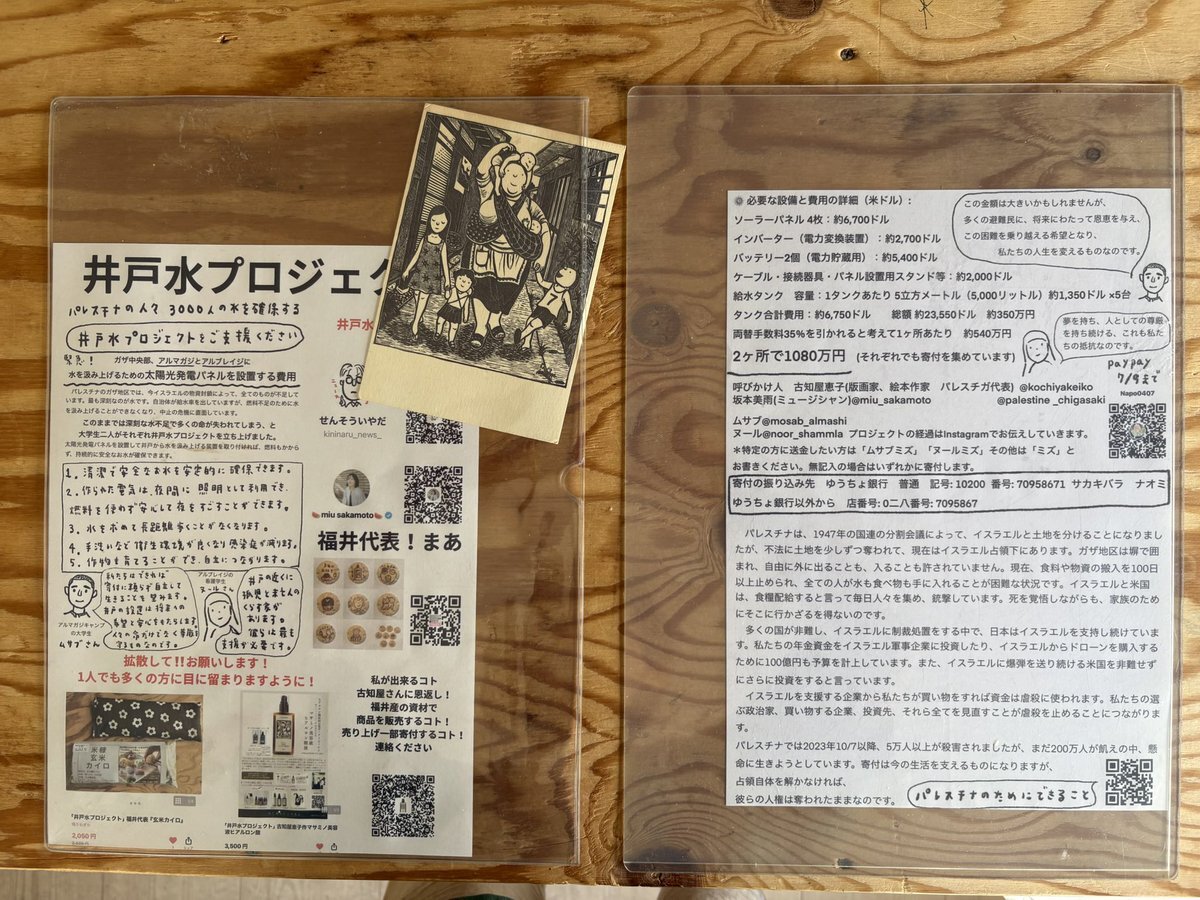 井戸水プロジェク
パレスチナの人々 3000人の水を確保する
井戸水プロジェクトをご支援ください
緊急!
ガザ中央部、アルマガジとアルブレイジに
水を汲み上げるための太陽光発電パネルを設置する費用
パレスチナのガザ地区では、今イスラエルの物資封鎖によって、全てのものが不足しています。最も深刻なのが水です。自治体が給水車を出していますが、燃料不足のために水を汲み上げることができなくなり、中止の危機に直面しています。
このままでは深刻な水不足で多くの命が失われてしまう、と
大学生二人がそれぞれ井戸水プロジェクトを立ち上げました。
太陽光発電パネルを設置して井戸から水を汲み上げる装置を取り付ければ、燃料もかからず、持続的に安全なお水が確保できます。
1. 清潔で安全な水を安定的に確保できます。
2. 作られた電気は、夜間に照明として利用でき、
燃料を使わず安心して夜をすごすことができます。
3. 水を求めて長距離歩くことがなくなります。
4. 手洗いなど衛生環境が良くなり感染症が減ります。
5. 作物を育てることができ、自立につながります。
私たちはできれば
寄付に頼らず自立して
生きることを望みます。
井戸の設置は将来への
希望と安心をもたらします。
アルマガジキャンプ
の大学生
ムサブさん
アルブレイジの
看護学生
ヌールさん
井戸の近くに
孤児と未亡人の
くらす家が
あります。
彼らは最も
支援が必要です。
拡散して!!お願いします!
1人でも多くの方に目に留まりますように!
「井戸水プロジェクト」福井代表『玄米カイロ』
2,050円
「井戸水プロジェクト」古知屋恵子作マサミノ美容液ヒアルロン酸
3,500円
米糠
玄米
カイロ
井戸水
せんそういやだ
kininaru_news_
miu sakamoto
福井代表!まあ
私が出来るコト
古知屋さんに恩返し!
福井産の資材で
商品を販売するコト!
売り上げ一部寄付するコト!
連絡ください
必要な設備と費用の詳細(米ドル):
ソーラーパネル 4枚:約6,700ドル
インバーター(電力変換装置):約2,700ドル
バッテリー2個(電力貯蔵用):約5,400ドル
ケーブル・接続器具・パネル設置用スタンド等:約2,000ドル
給水タンク 容量:1タンクあたり 5立方メートル(5,000リットル)約1,350ドル ×5台
タンク合計費用:約6,750ドル 総額 約23,550ドル 約350万円
両替手数料35%を引かれると考えて1ヶ所あたり 約540万円
2ヶ所で1080万円 (それぞれでも寄付を集めています)
この金額は大きいかもしれませんが、
多くの避難民に、将来にわたって恩恵を与え、
この困難を乗り越える希望となり、
私たちの人生を変えるものなのです。
夢を持ち、人としての尊厳
を持ち続ける、これも私た
ちの抵抗なのです。
paypay
7/9まで
Napo0407
呼びかけ人 古知屋恵子(版画家、絵本作家 パレスチガ代表) @kochiyakeiko
坂本美雨(ミュージシャン)@miu_sakamoto @palestine _chigasaki
ムサブ@mosab_almashi
ヌール@noor_shammla プロジェクトの経過はInstagramでお伝えしていきます。
*特定の方に送金したい方は「ムサブミズ」「ヌールミズ」その他は「ミズ」と
お書きください。無記入の場合はいずれかに寄付します。
寄付の振り込み先 ゆうちょ銀行 普通 記号: 10200 番号: 70958671 サカキバラ ナオミ
ゆうちょ銀行以外から 店番号: 0二八番号: 7095867
パレスチナは、1947年の国連の分割会議によって、イスラエルと土地を分けることになりまし
たが、不法に土地を少しずつ奪われて、現在はイスラエル占領下にあります。ガザ地区は塀で囲ま
れ、自由に外に出ることも、入ることも許されていません。現在、食料や物資の搬入を100日
以上止められ、全ての人が水も食べ物も手に入れることが困難な状況です。イスラエルと米国
は、食糧配給すると言って毎日人々を集め、銃撃しています。死を覚悟しながらも、家族のため
にそこに行かざるを得ないのです。
多くの国が非難し、イスラエルに制裁処置をする中で、日本はイスラエルを支持し続けていま
す。私たちの年金資金をイスラエル軍事企業に投資したり、イスラエルからドローンを購入する
ために100億円も予算を計上しています。また、イスラエルに爆弾を送り続ける米国を非難せず
にさらに投資をすると言っています。
イスラエルを支援する企業から私たちが買い物をすれば資金は虐殺に使われます。私たちの選
ぶ政治家、買い物する企業、投資先、それら全てを見直すことが虐殺を止めることにつながりま
す。
パレスチナでは2023年10/7以降、5万人以上が殺害されましたが、まだ200万人が飢えの中、懸
命に生きようとしています。寄付は今の生活を支えるものになりますが、
占領自体を解かなければ、
彼らの人権は奪われたままなのです。
パレスチナのためにできること